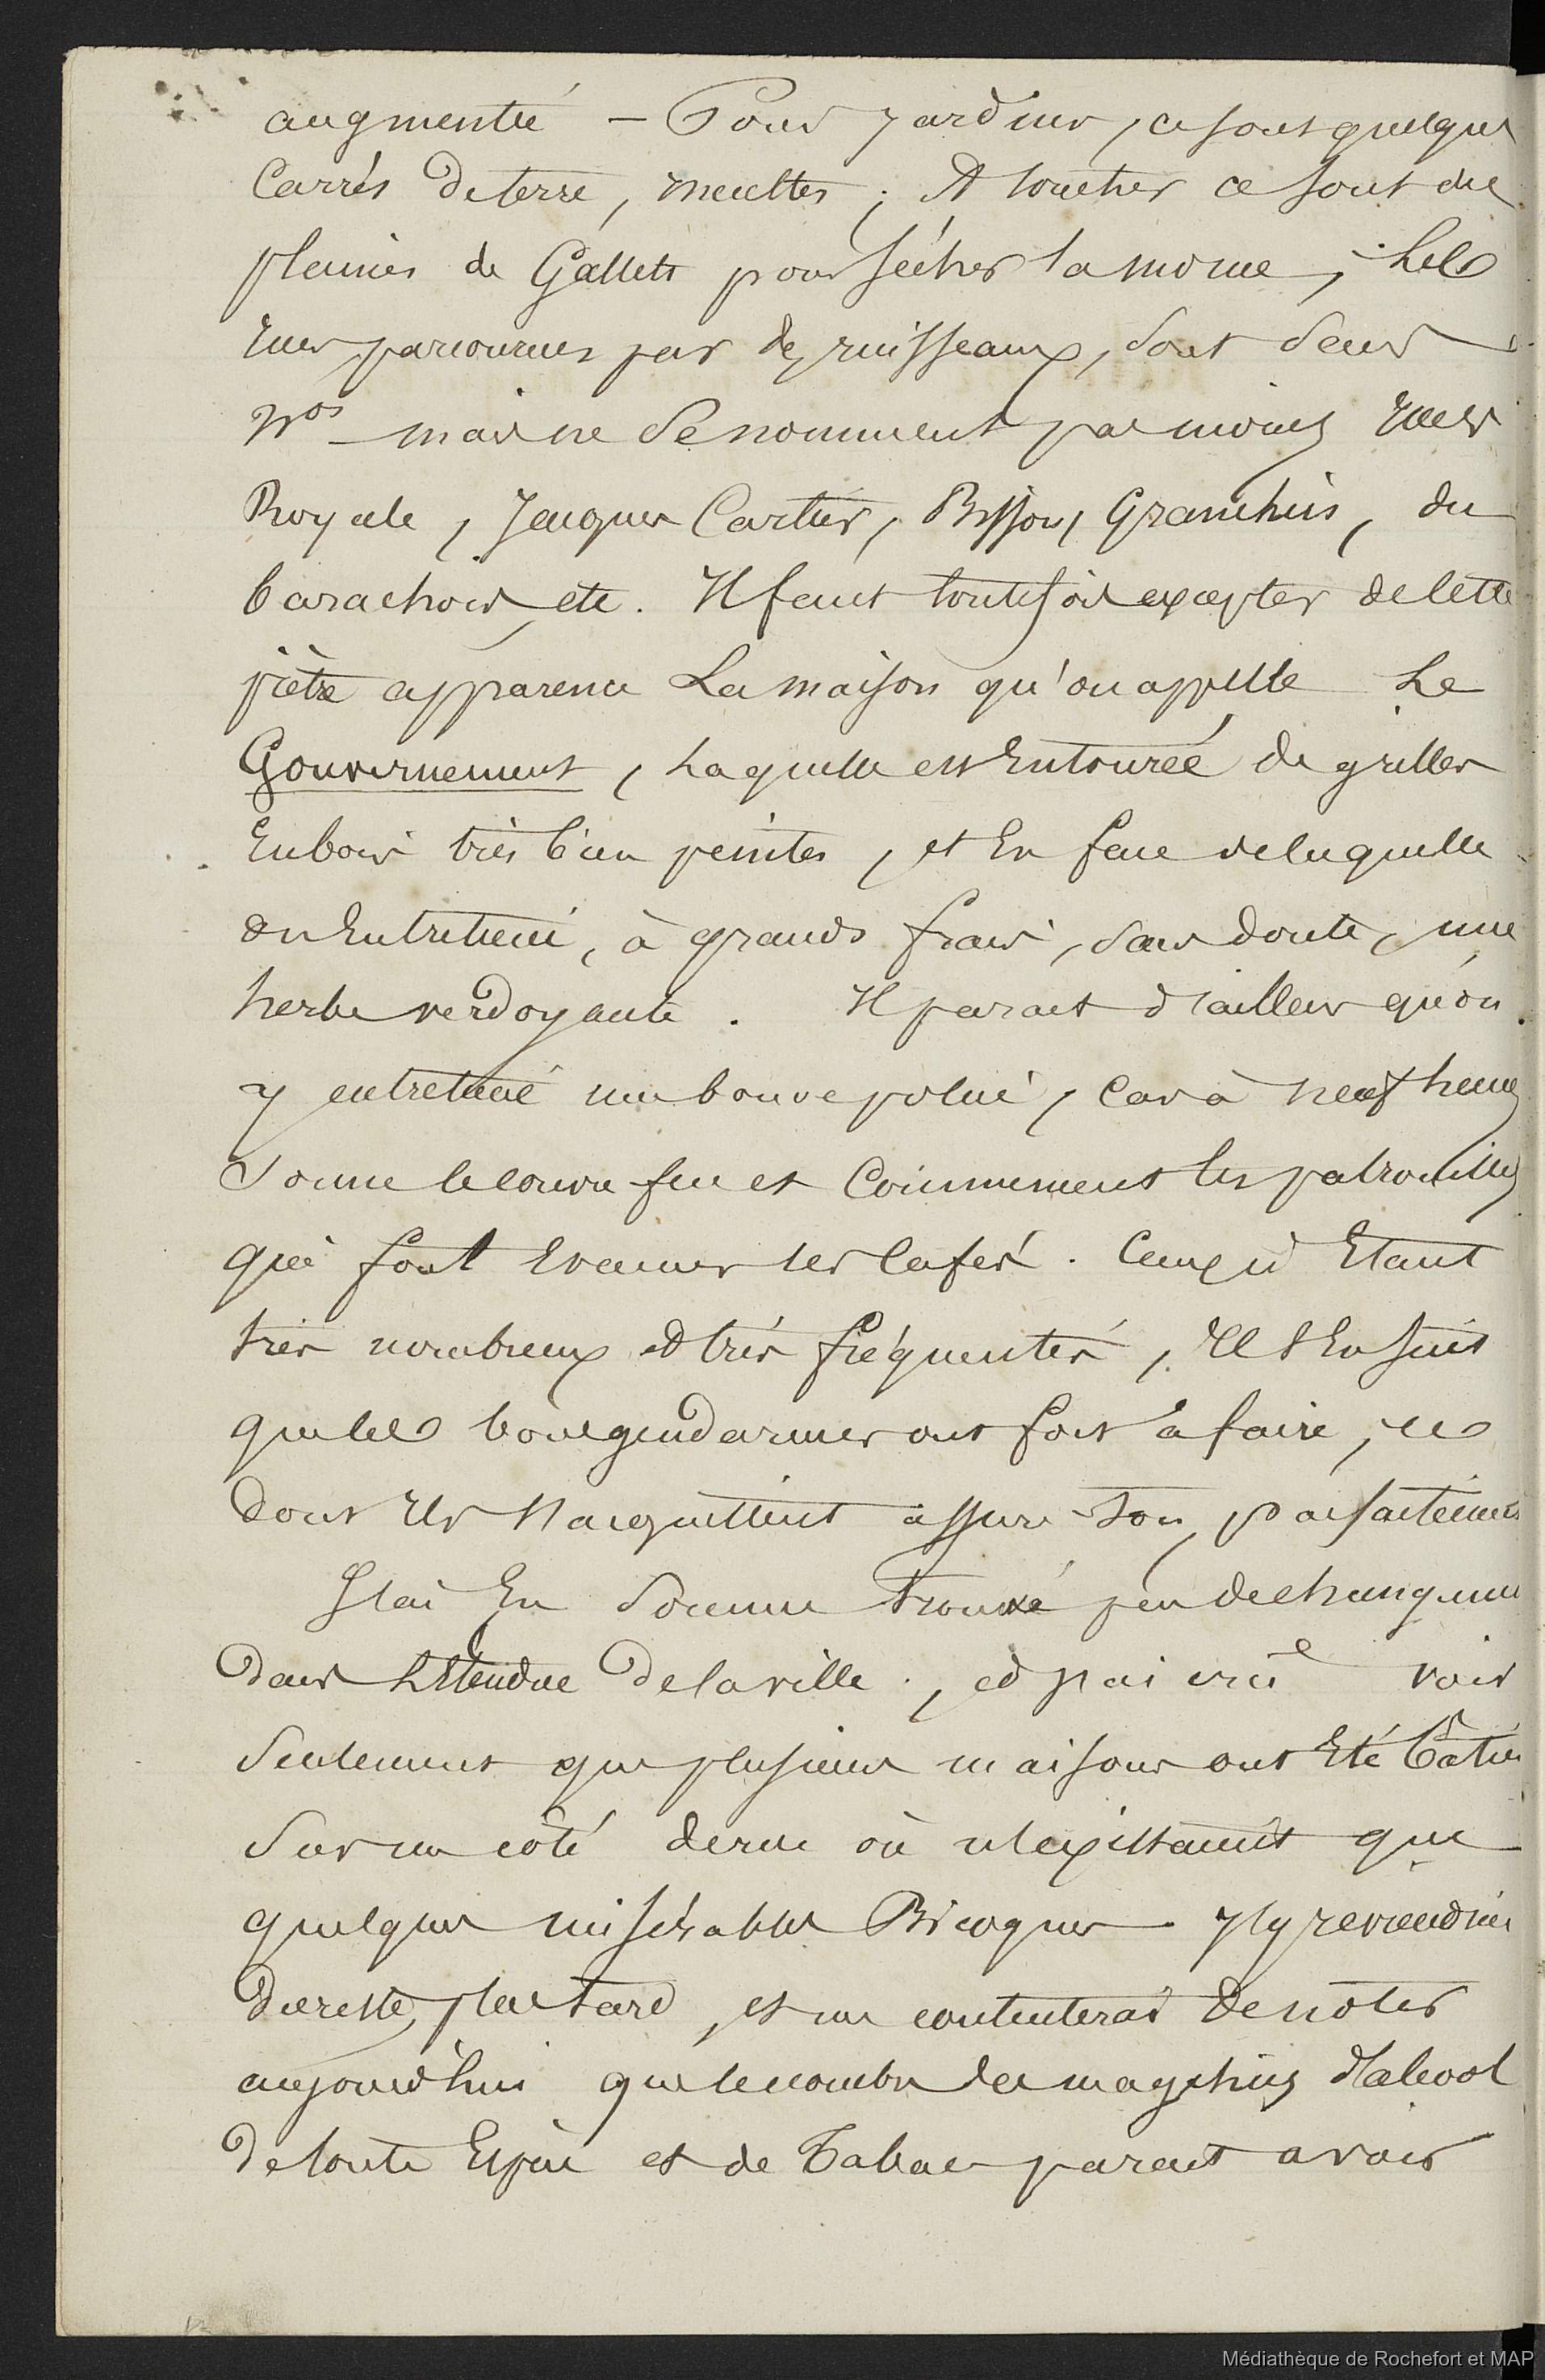 augmenté – Pour jardins, ce sont quelques
Carrés de terre, incultes ; A toucher ce sont des
plaines de Gallets pour sécher la morue ; Les
rues parcourues par des ruisseaux, sont sans
Nos mais ne se nomment pas moins rues
Royale, Jacques Cartier, Bisson, Granchain, du
barachois, etc. Il faut toutefois excepter de cette
piètre apparence La maison qu'on appelle Le
Gouvernement, Laquelle est Entourée de grilles
En bois très bien peintes, et En face de laquelle
on Entretient, à grands frais, sans doute, une
herbe verdoyante. Il parait d'ailleurs qu'on
y entretient une bonne police, Car à neuf heures
Sonne le couvre feu et Commencent les patrouilles
qui font Evacuer les Cafés. Ceux ci Etant
très nombreux et très fréquentés, Il s'En suit
que les bons gendarmes ont fort à faire, ce
dont Ils s'acquittent assure-t-on, parfaitement
J'ai En Somme trouvé peu de changement
Dans L'Etendue de la ville, et j'ai cru voir
Seulement que plusieurs maisons ont Eté bâties
Sur un côté de rue où n'existaient que
quelques misérables Bicoques – J'y reviendrai
Du reste, plus tard, et me contenterai de noter
aujourd'hui que le nombre des magasins d'alcool
De toute Espèce et de Tabac parait avoir
Médiathèque de Rochefort et MAP